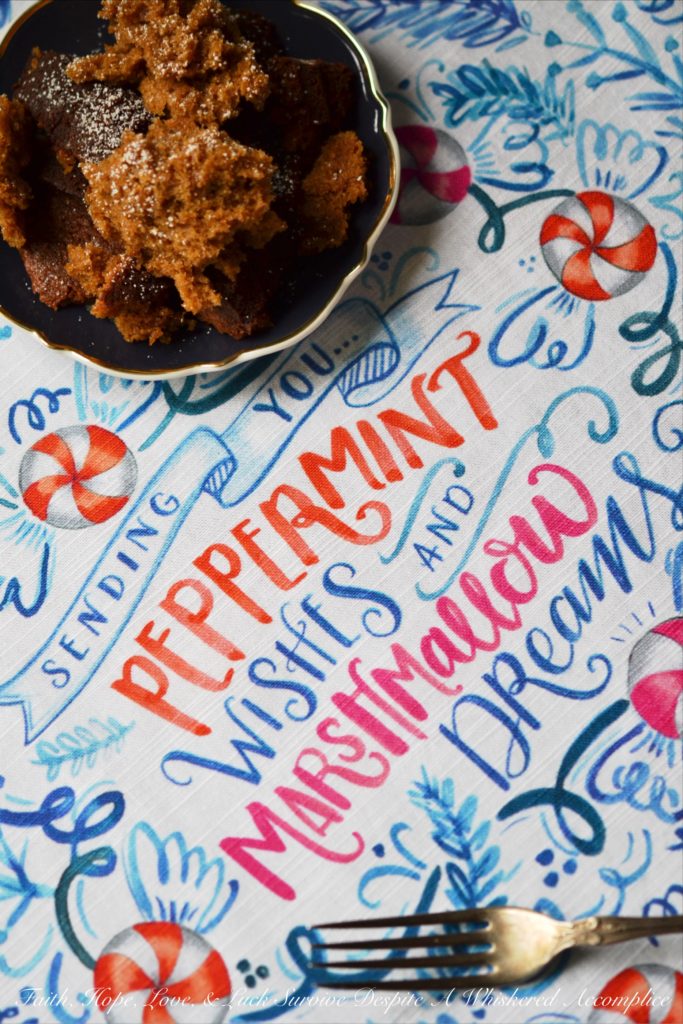 SENDING YOU...
PEPPERMINT
WISHES AND
MARSHMallow
DReams
Faith, Hope, Love, & Luck Survive Despite A Whiskered Accomplice